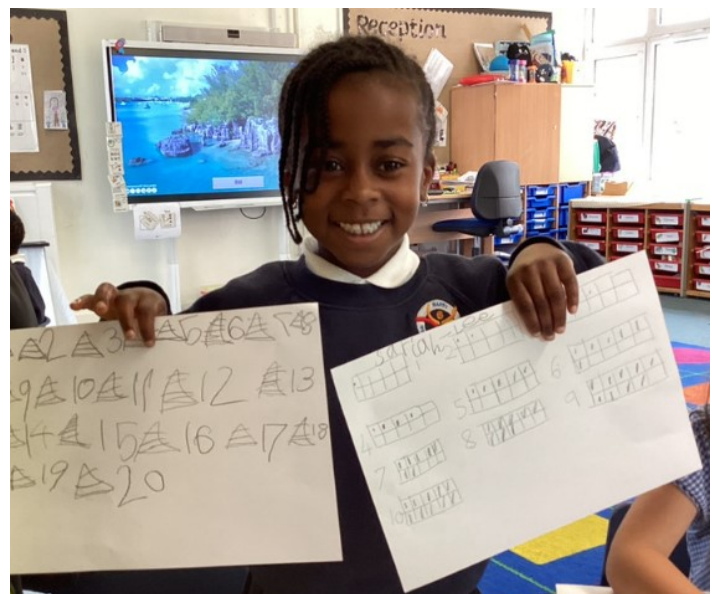 Reception
2 3 5 6 7 8
9 10 11 12 13
14 15 16 17 18
19 20
sariah-lee
2
4 5 6
7 8 9
10